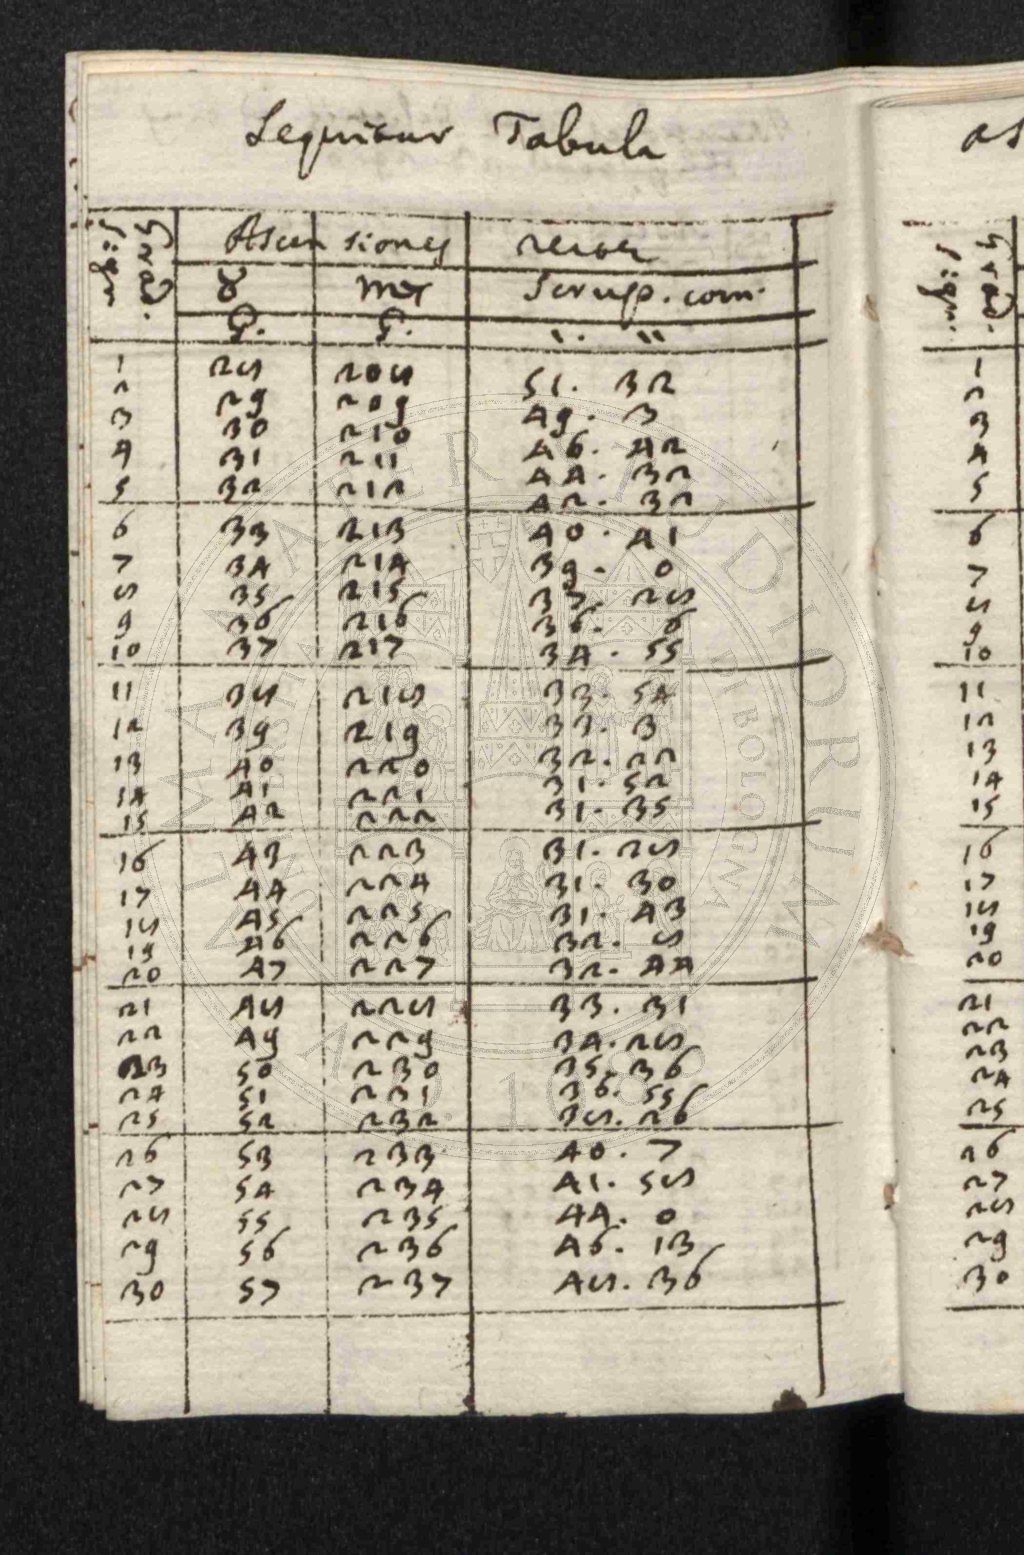 Sequitur Tabula
Grad. Sign.
Ascensiones rectae
♉ ♏ Scrup. com.
G. G. ' "
1 28 208 51. 32
2 29 209 49. 3
3 30 210 46. 42
4 31 211 44. 32
5 32 212 42. 32
6 33 213 40. 41
7 34 214 39. 0
8 35 215 37. 28
9 36 216 36. 6
10 37 217 34. 55
11 38 218 33. 54
12 39 219 33. 3
13 40 220 32. 22
14 41 221 31. 52
15 42 222 31. 35
16 43 223 31. 28
17 44 224 31. 30
18 45 225 31. 43
19 46 226 32. 8
20 47 227 32. 44
21 48 228 33. 31
22 49 229 34. 28
23 50 230 35. 36
24 51 231 36. 55
25 52 232 38. 26
26 53 233 40. 7
27 54 234 41. 58
28 55 235 44. 0
29 56 236 46. 13
30 57 237 48. 36
as
Grad. Sign.
1
2
3
4
5
6
7
8
9
10
11
12
13
14
15
16
17
18
19
20
21
22
23
24
25
26
27
28
29
30
ALMA MATER STUDIORUM
A.D. 1088